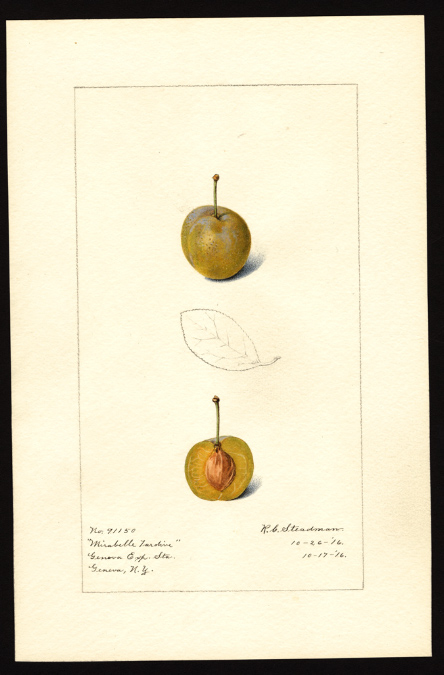 No. 91150
"Mirabelle Tardive"
Geneva Exp. Sta.
Geneva, N.Y.
R.C. Steadman
10-26-'16.
10-17-'16.